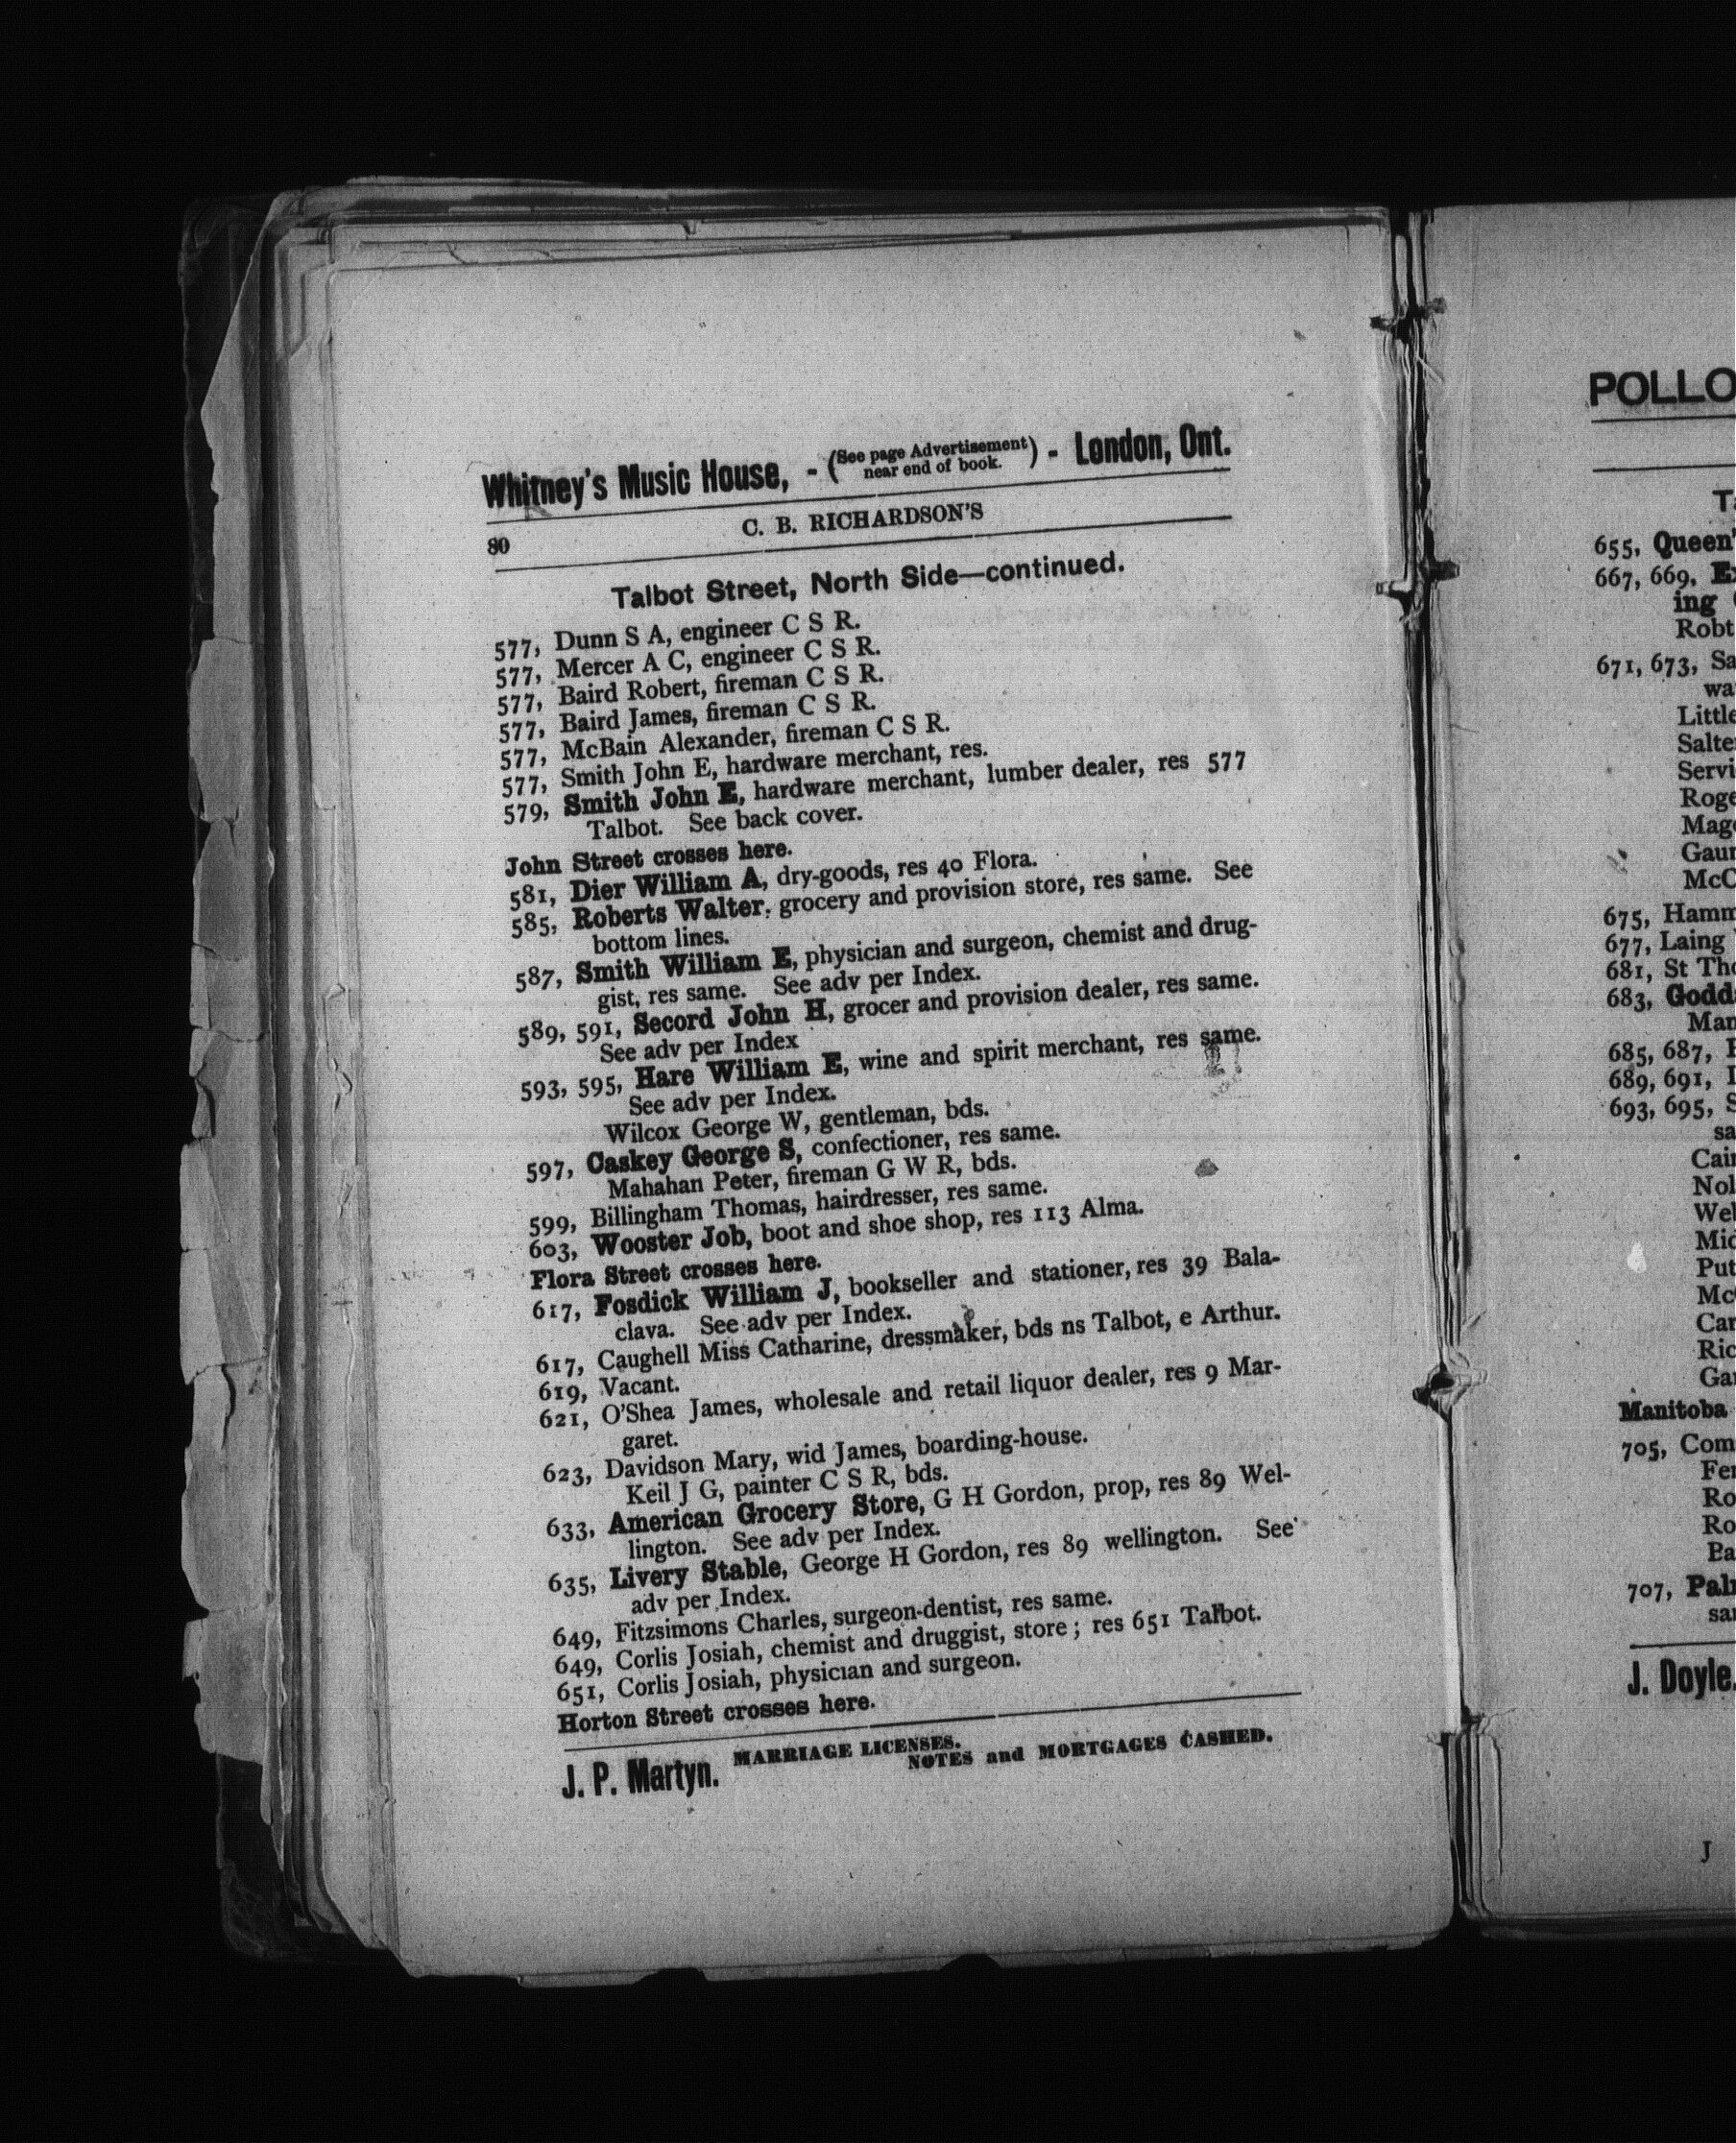 Whitney's Music House, - (See page Advertisement near end of book.) - London, Ont.
80
C. B. RICHARDSON'S
Talbot Street, North Side—continued.
577, Dunn S A, engineer C S R.
577, Mercer A C, engineer C S R.
577, Baird Robert, fireman C S R.
577, Baird James, fireman C S R.
577, McBain Alexander, fireman C S R.
577, Smith John E, hardware merchant, res.
579, Smith John E, hardware merchant, lumber dealer, res 577
Talbot. See back cover.
John Street crosses here.
581, Dier William A, dry-goods, res 40 Flora.
585, Roberts Walter, grocery and provision store, res same. See
bottom lines.
587, Smith William E, physician and surgeon, chemist and drug-
gist, res same. See adv per Index.
589, 591, Secord John H, grocer and provision dealer, res same.
See adv per Index
593, 595, Hare William E, wine and spirit merchant, res same.
See adv per Index.
Wilcox George W, gentleman, bds.
597, Caskey George S, confectioner, res same.
Mahahan Peter, fireman G W R, bds.
599, Billingham Thomas, hairdresser, res same.
603, Wooster Job, boot and shoe shop, res 113 Alma.
Flora Street crosses here.
617, Fosdick William J, bookseller and stationer, res 39 Bala-
clava. See adv per Index.
617, Caughell Miss Catharine, dressmaker, bds ns Talbot, e Arthur.
619, Vacant.
621, O'Shea James, wholesale and retail liquor dealer, res 9 Mar-
garet.
623, Davidson Mary, wid James, boarding-house.
Keil J G, painter C S R, bds.
633, American Grocery Store, G H Gordon, prop, res 89 Wel-
lington. See adv per Index.
635, Livery Stable, George H Gordon, res 89 wellington. See
adv per Index.
649, Fitzsimons Charles, surgeon-dentist, res same.
649, Corlis Josiah, chemist and druggist, store; res 651 Talbot.
651, Corlis Josiah, physician and surgeon.
Horton Street crosses here.
J. P. Martyn. MARRIAGE LICENSES.
NOTES and MORTGAGES CASHED.
POLLO
655, Queen'
667, 669,
ing
Robt
671, 673,
Little
Salte
Servi
Roge
Mag
Gaur
McC
675, Hamm
677, Laing
681, St Tho
683, Godd
Man
685, 687,
689, 691,
693, 695, S
Cair
Nol
Wel
Mic
Put
Mc
Car
Ric
Gar
Manitoba
705, Com
Fer
Ro
Ro
Ba
707, Pal
J. Doyle
J